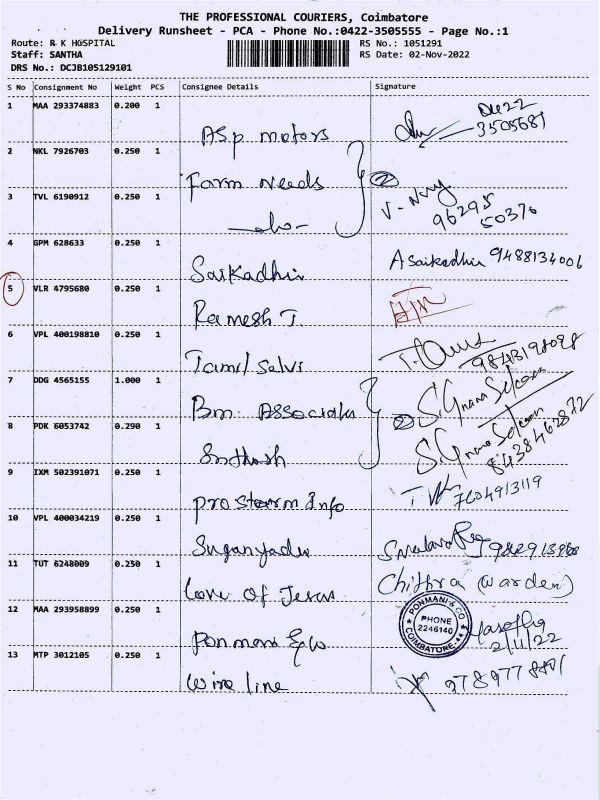 THE PROFESSIONAL COURIERS, Coimbatore
Delivery Runsheet - PCA - Phone No.:0422-3505555 - Page No.:1
Route: R K HOSPITAL RS No.: 1051291
Staff: SANTHA RS Date: 02-Nov-2022
DRS No.: DCJB105129101
S No Consignment No Weight PCS Consignee Details Signature
1 MAA 293374883 0.200 1
Asp motors 3505681
2 NKL 7926703 0.250 1
Farm Needs 2
3 TVL 6190912 0.250 1
96295
50370
4 GPM 628633 0.250 1
Saikadhir A Saikadhir 9488134006
5 VLR 4795680 0.250 1
Ramesh T.
6 VPL 400198810 0.250 1
Tamil Selvi 9843198098
7 DDG 4565155 1.000 1
Bm Associates S. Gnana Selvan
8 PDK 6053742 0.290 1 2
Santhosh S. Gnana Selvan
8438462872
9 IXM 502391071 0.250 1
Prostorm Info 7604913119
10 VPL 400034219 0.250 1
Suganyadevi
11 TUT 6248009 0.250 1
Love of Jesus Chithra (warden)
12 MAA 293958899 0.250 1
PONMANI & CO
PHONE
2246140
COIMBATORE
Ponmani & Co 2/11/22
13 MTP 3012105 0.250 1
Wire line